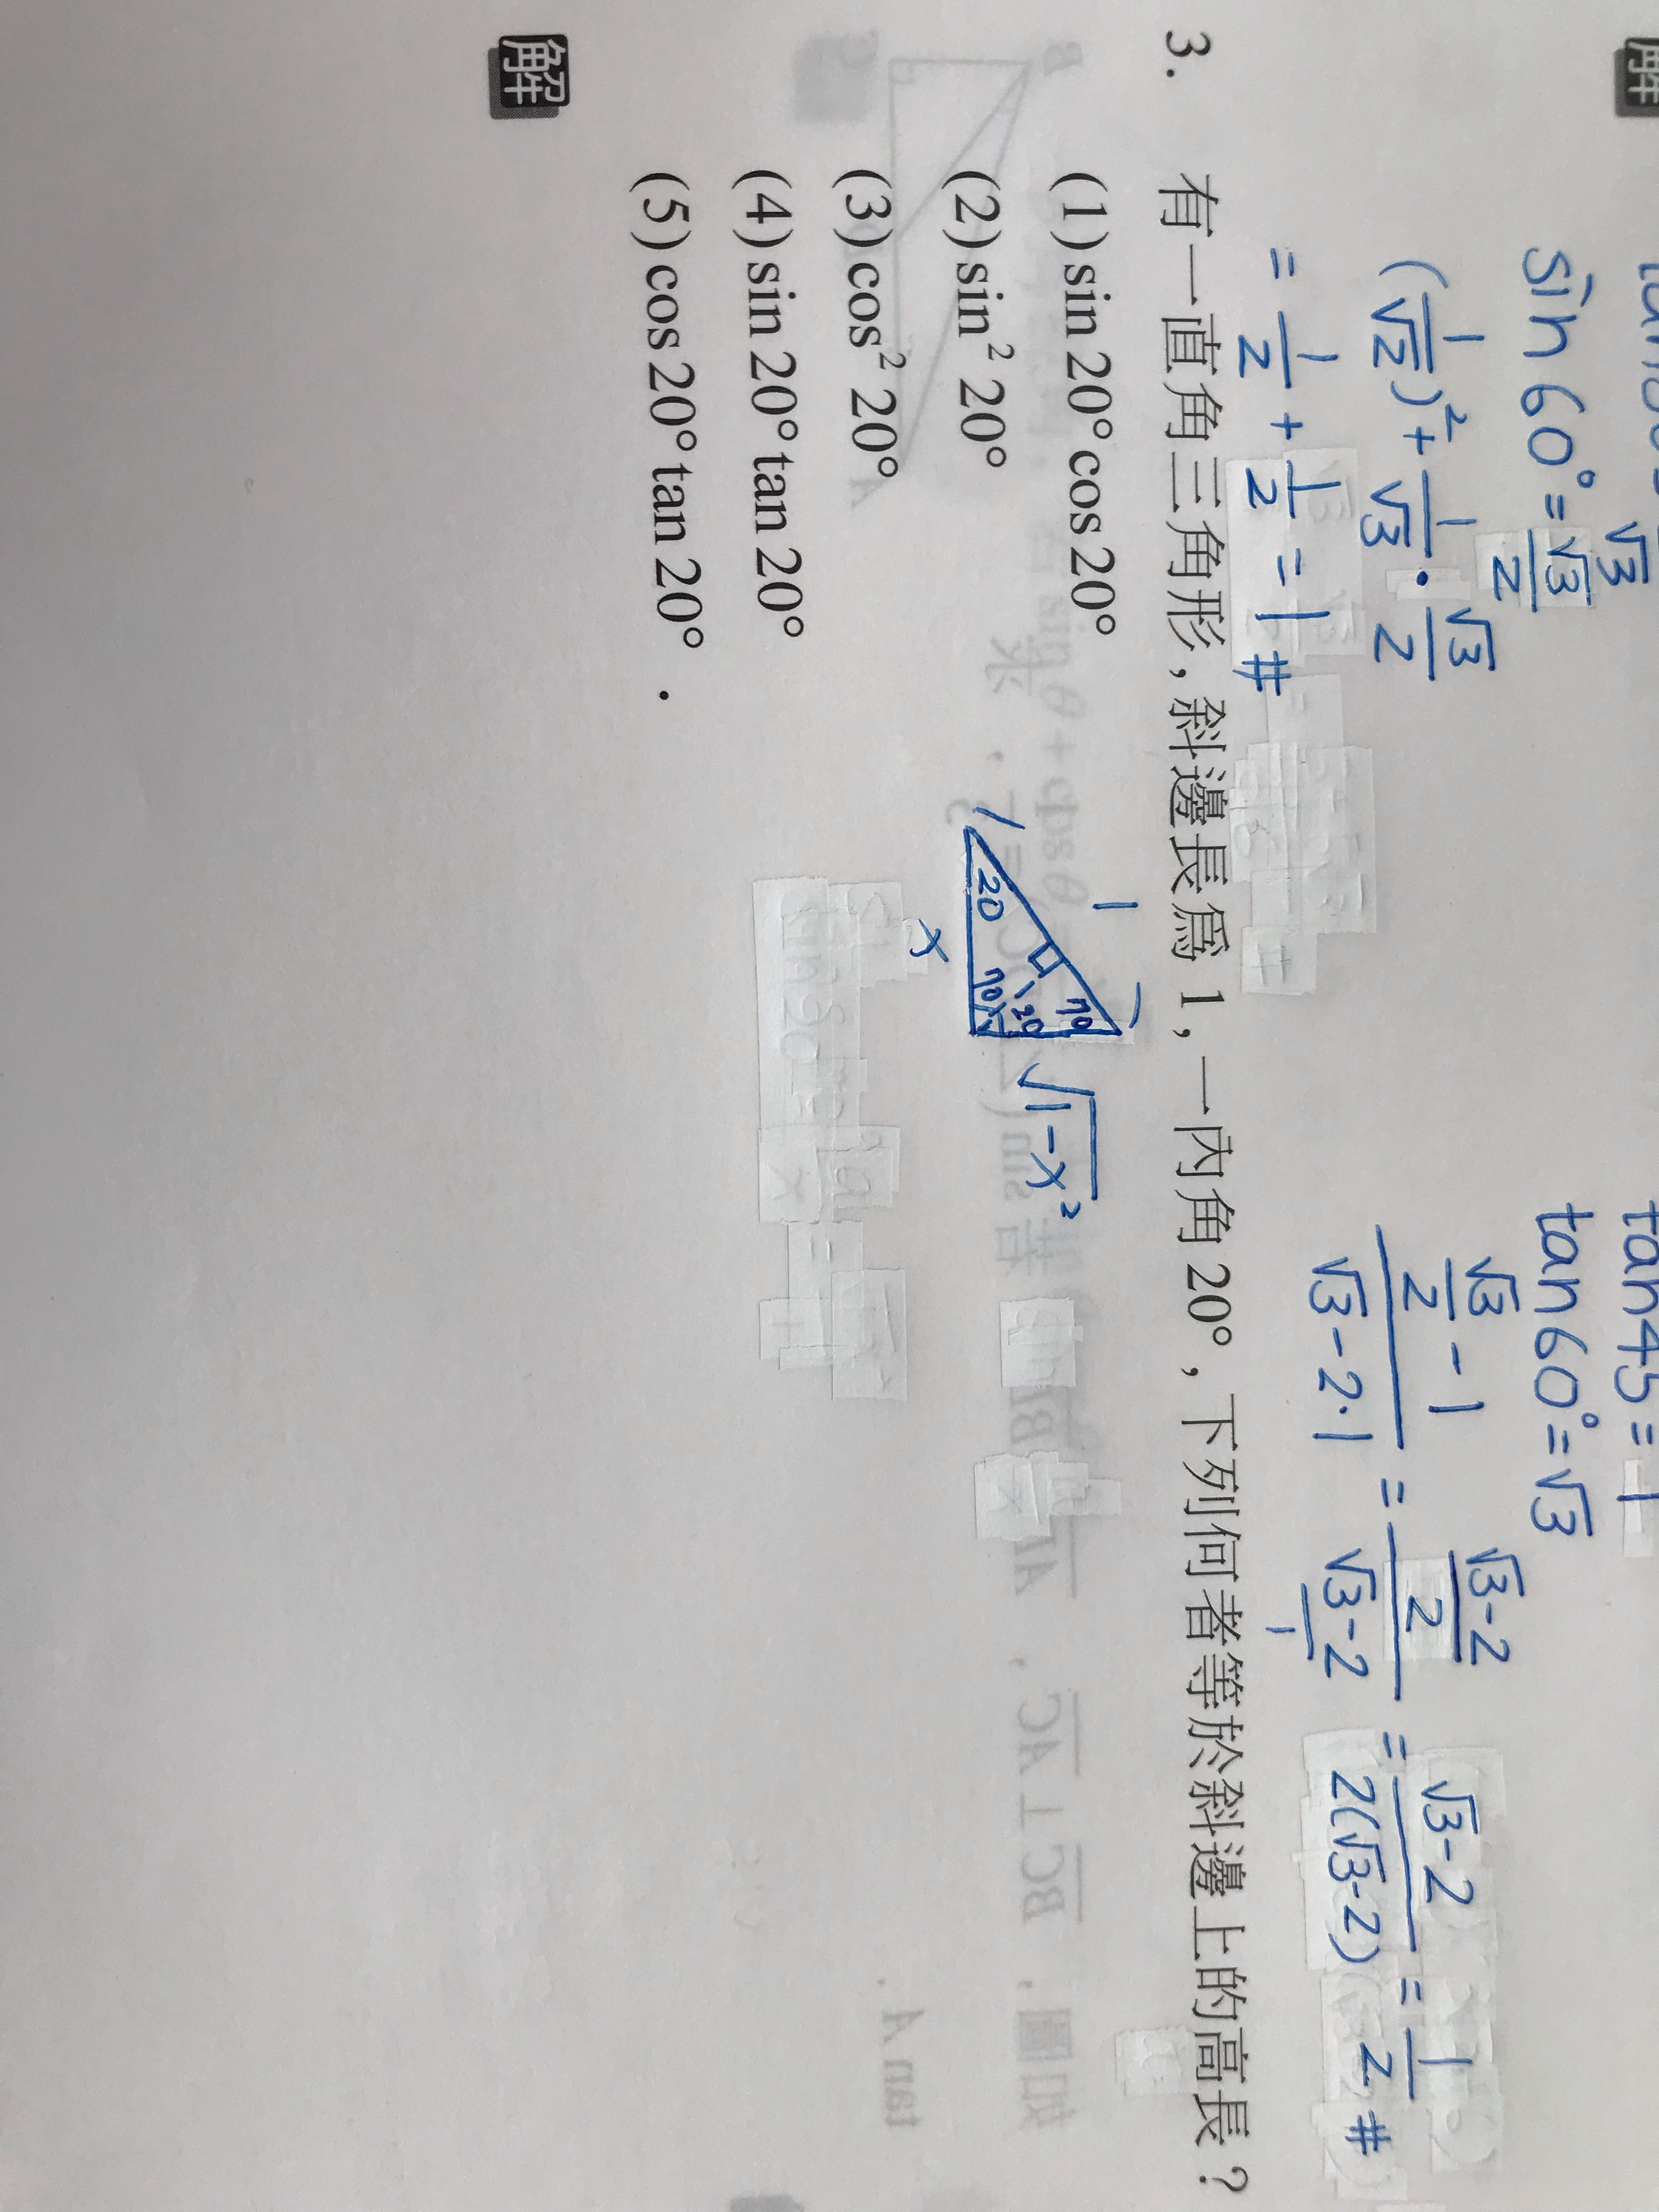 解
tan45=1
sin60°=√3/2
tan60°=√3
(1/√2)²+1/√3·√3/2
=1/2+1/2=1#
(√3/2-1)/(√3-2·1)=((√3-2)/2)/((√3-2)/1)=(√3-2)/(2(√3-2))=1/2#
3. 有一直角三角形,斜邊長為 1,一內角 20°,下列何者等於斜邊上的高長?
(1)sin20°cos20°
(2)sin²20°
(3)cos²20°
(4)sin20°tan20°
(5)cos20°tan20°.
1
20
70
20
70
x
√1-x²
解